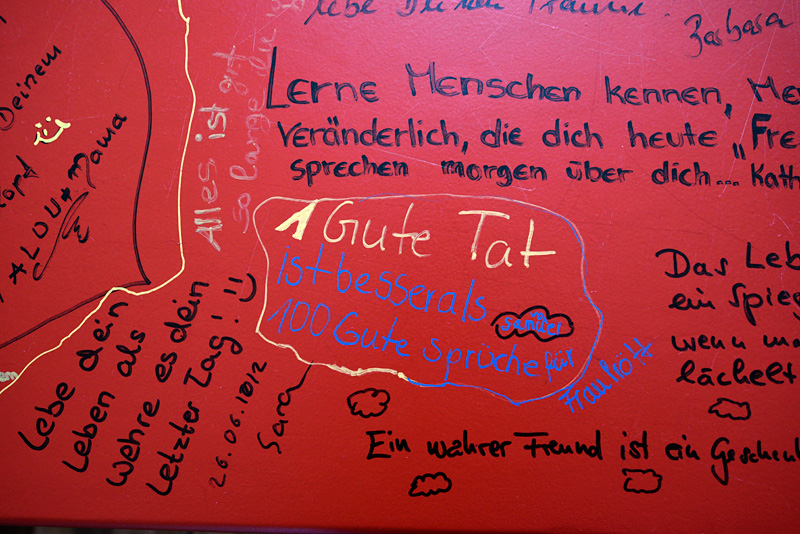 lebe Deinen Traum.
Barbara
Deinem
Mama
Alles ist gut
so lange du
Lerne Menschen kennen,
veränderlich, die dich heute „Fre
sprechen morgen über dich... Kath
1 Gute Tat
ist besser als
100 Gute Sprüche für
Das Leb
ein Spieg
wenn
lächelt
Lebe dein
Leben als
wehre es dein
Letzter Tag!
26.06.1012
Sara
Ein wahrer Freund ist ein Geschenk